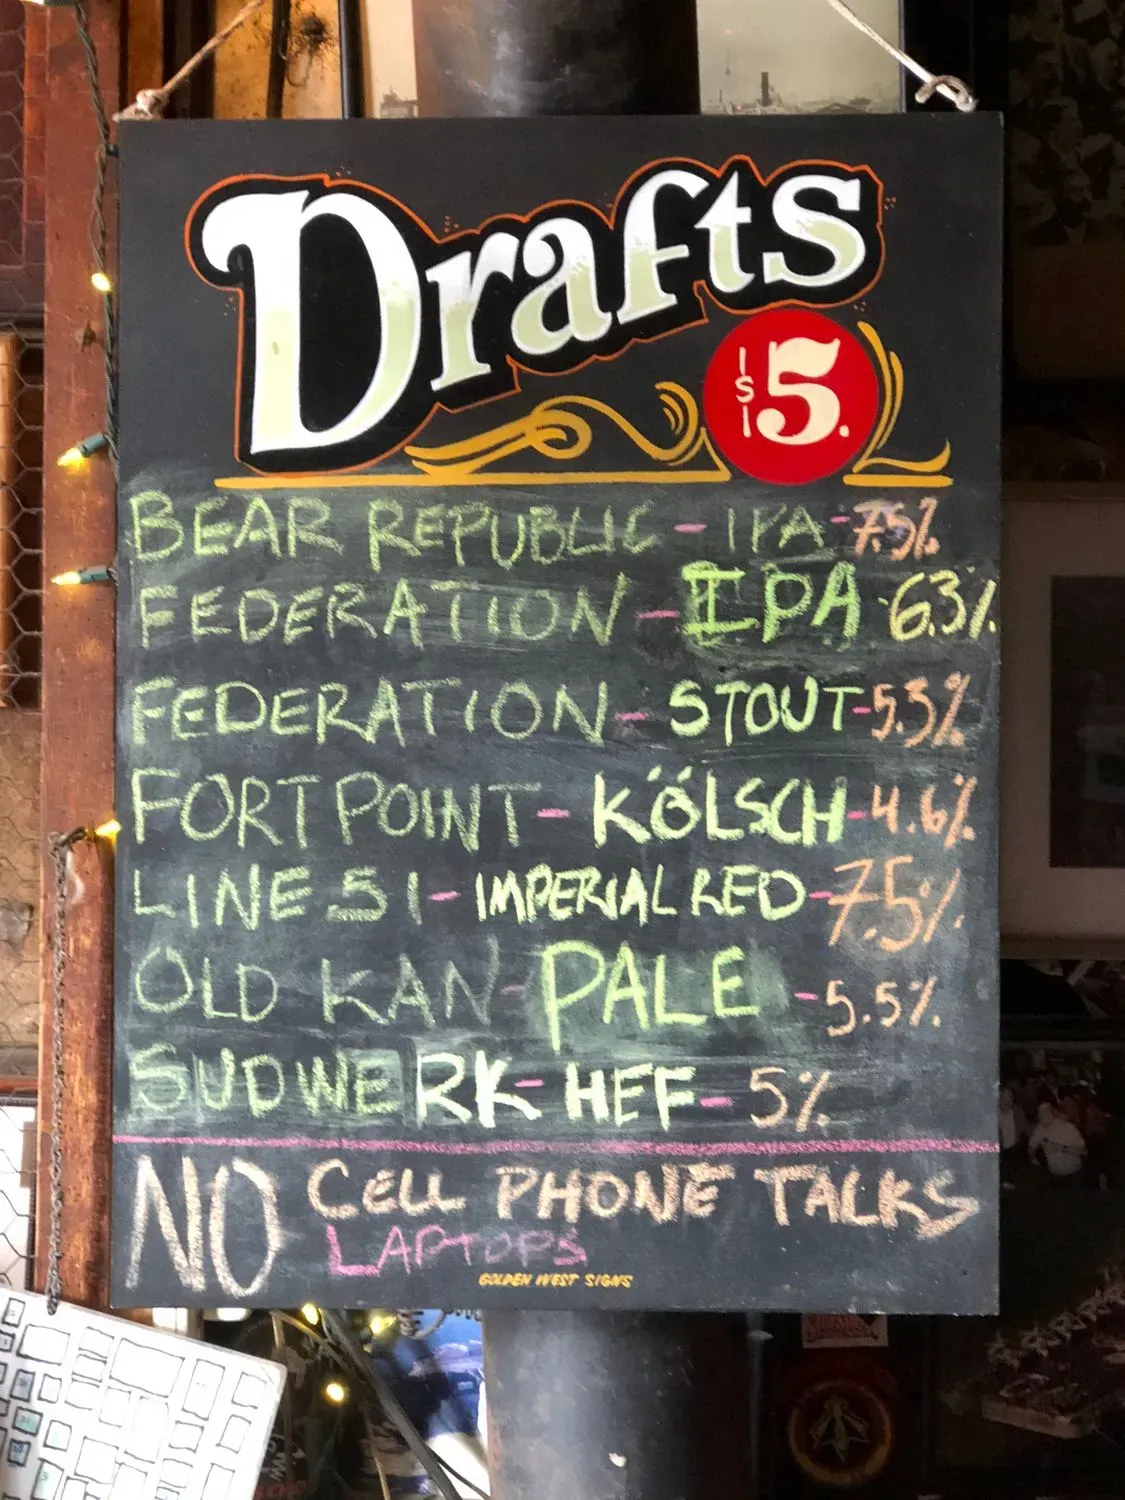 Drafts
$5.
BEAR REPUBLIC - IPA - 7.5%
FEDERATION - IPA - 6.3%
FEDERATION - STOUT - 5.3%
FORT POINT - KÖLSCH - 4.6%
LINE 51 - IMPERIAL RED - 7.5%
OLD KAN - PALE - 5.5%
SUDWERK - HEF - 5%
NO CELL PHONE TALKS
LAPTOPS
GOLDEN WEST SIGNS